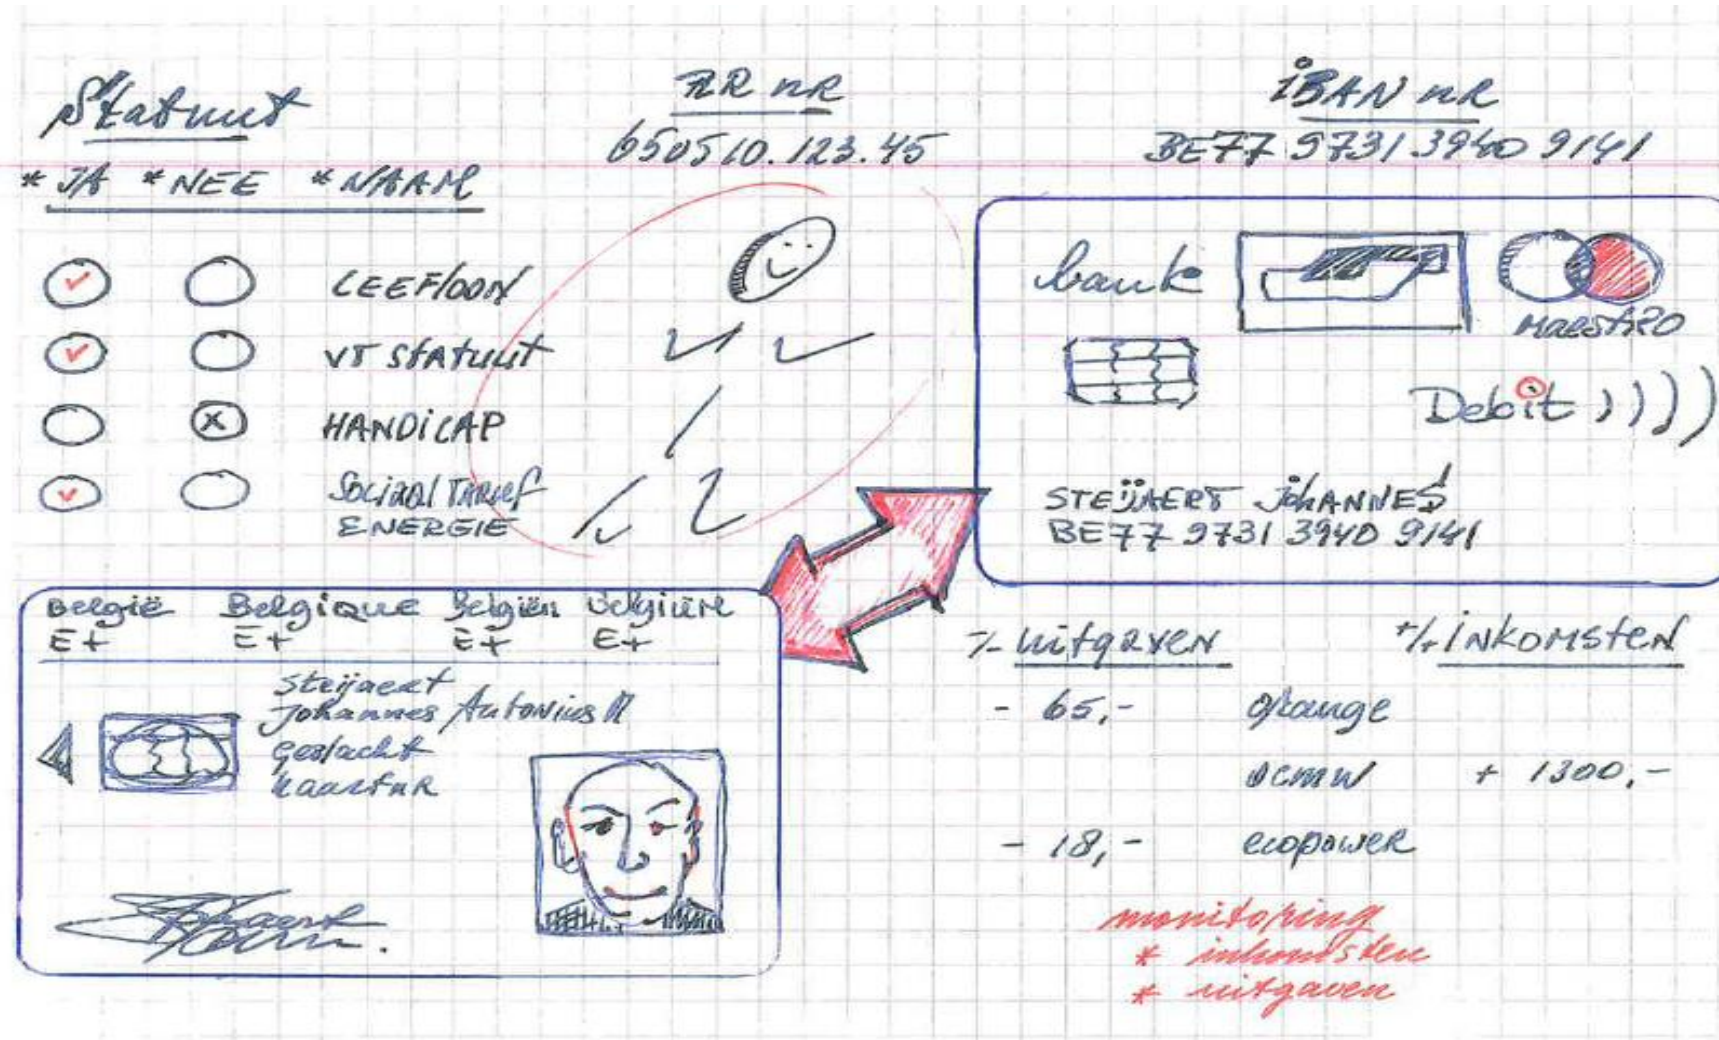 Statuut
* JA * NEE * NAAM
LEEFLOON
VT STATUUT
HANDICAP
SOCIAAL TARIEF
ENERGIE
RR nR
650510.123.45
IBAN nR
BE77 9731 3940 9141
bank
MAESTRO
Debit
STEIJAERT JOHANNES
BE77 9731 3940 9141
België Belgique Belgiën Belgium
E+ E+ E+ E+
Steijaert
Johannes Antonius M
geslacht
kaartnR
-/- uitgaven +/+ INKOMSTEN
- 65,- orange
OCMW + 1300,-
- 18,- ecopower
monitoring
* inkomsten
* uitgaven